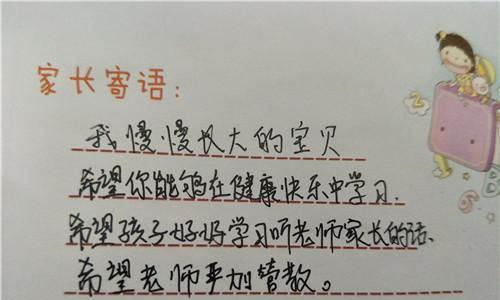 家长寄语:
我慢慢长大的宝贝
希望你能够在健康快乐中学习.
希望孩子好好学习听老师家长的话.
希望老师严加管教。